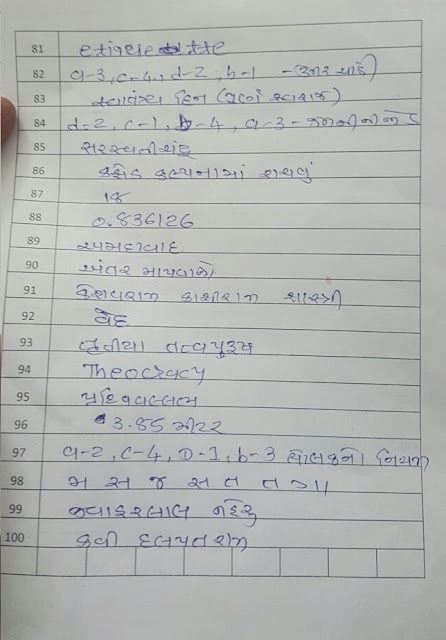 81 etiquette
82 a-3, c-4, d-2, b-1 - ઉપર પ્રમાણે
83 સ્વાતંત્ર્ય દિન (પૂર્ણ સ્વરાજ)
84 d-2, c-1, b-4, a-3 - જનનીની જોડ
85 સરસ્વતીચંદ્ર
86 કલ્પનામાં રાચવું
87 18
88 0.836126
89 અમદાવાદ
90 અંતર માપવાનો
91 કેશવરામ કાશીરામ શાસ્ત્રી
92 વેદ
93 તૃતીયા તત્પુરુષ
94 Theocracy
95
96 3.85 મીટર
97 a-2, c-4, D-1, b-3 નિયમ
98 મ સ જ સ ત ત ગા
99 જવાહરલાલ નહેરુ
100 કવી દલપતરામ